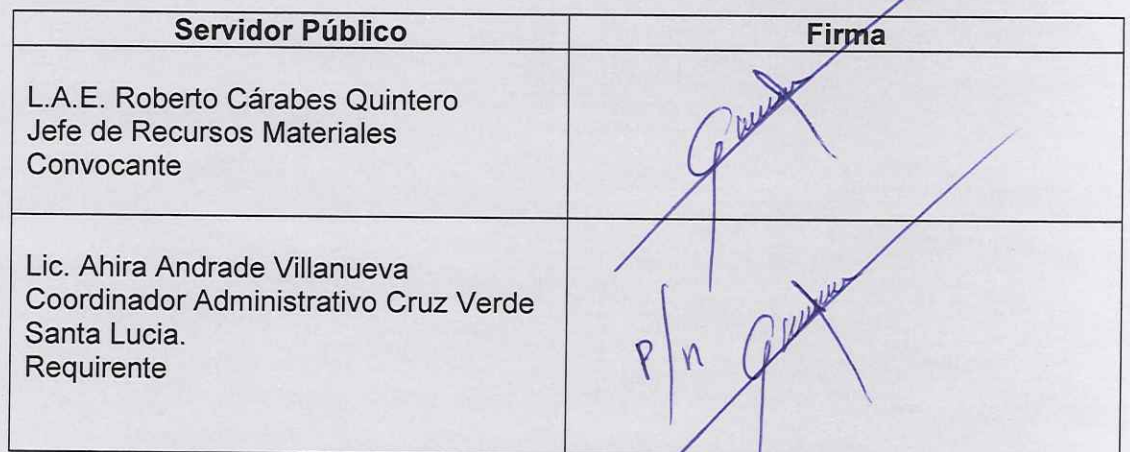 Servidor Público
Firma
L.A.E. Roberto Cárabes Quintero
Jefe de Recursos Materiales
Convocante
Lic. Ahira Andrade Villanueva
Coordinador Administrativo Cruz Verde
Santa Lucia.
Requirente
P/n